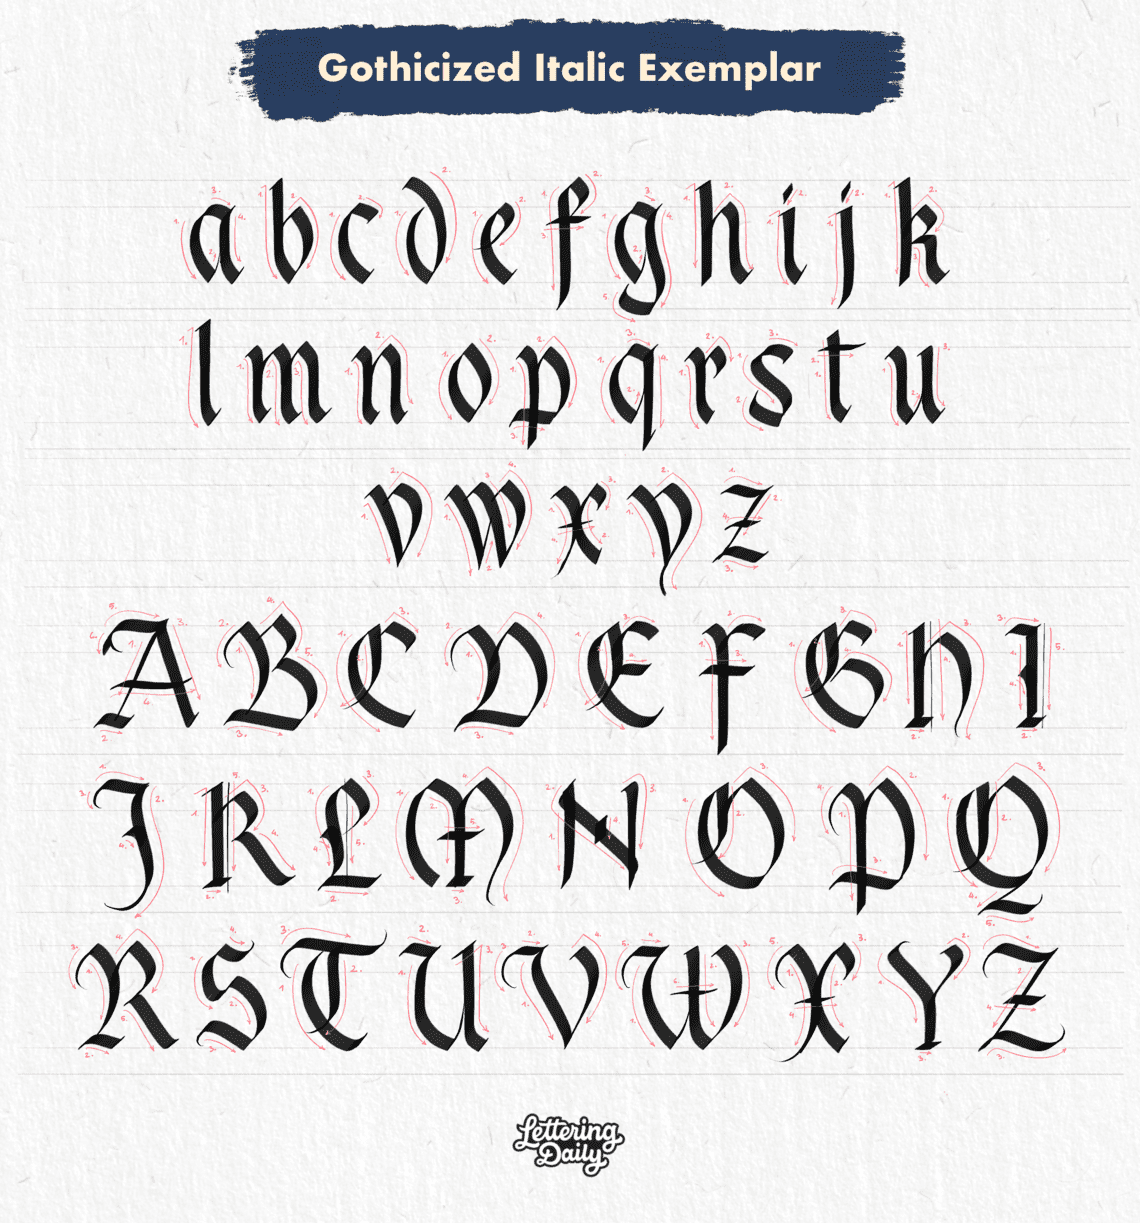 Gothicized Italic Exemplar
a b c d e f g h i j k
l m n o p q r s t u
v w x y z
A B C D E F G H I
J K L M N O P Q
R S T U V W X Y Z
Lettering
Daily